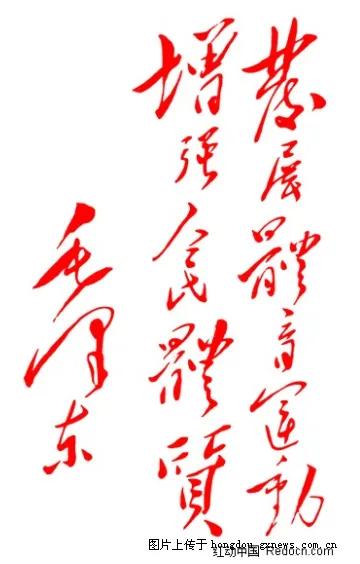 發展體育運動
增强人民體質
毛泽东
图片上传于 hongdou.gxnews.com.cn
红动中国 Redocn.com